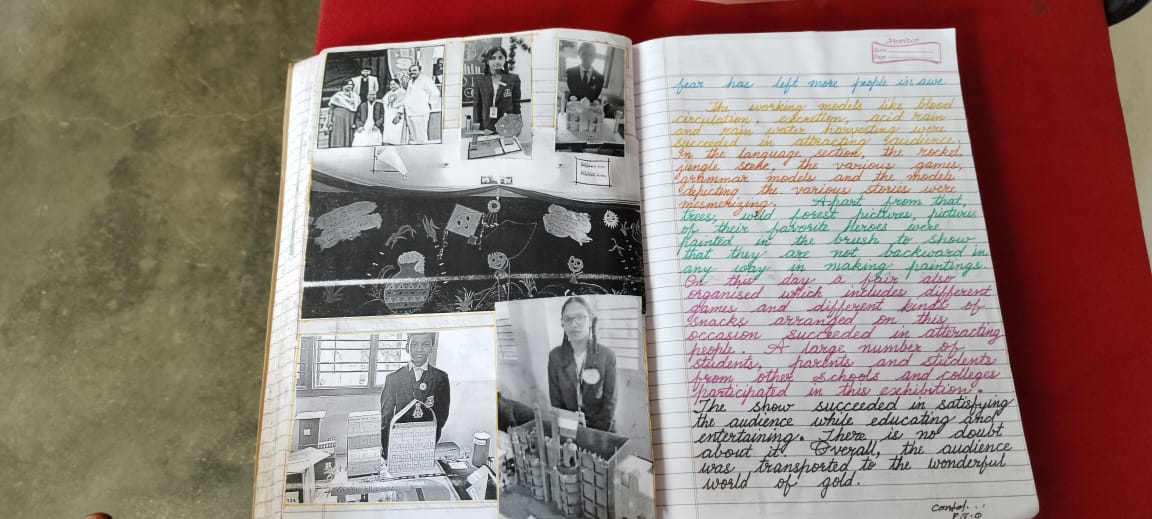 Date
Page
fear has left more people in awe.
The working models like blood
circulation, excretion, acid rain
and rain water harvesting were
succeeded in attracting audience.
In the language section, the rocked,
jungle scene, the various games,
grammar models and the models
depicting the various stories were
mesmerizing. Apart from that,
trees, wild forest pictures, pictures
of their favorite Heroes were
painted in the brush to show
that they are not backward in
any way in making paintings.
On this day a fair also
organised which includes different
games and different kinds of
snacks arranged on this
occasion succeeded in atteracting
people. A large number of
students, parents and students
from other schools and colleges
participated in this exhibition.
The show succeeded in satisfying
the audience while educating and
entertaining. There is no doubt
about it. Overall, the audience
was transported to the wonderful
world of gold.
Contd...
P.T.O